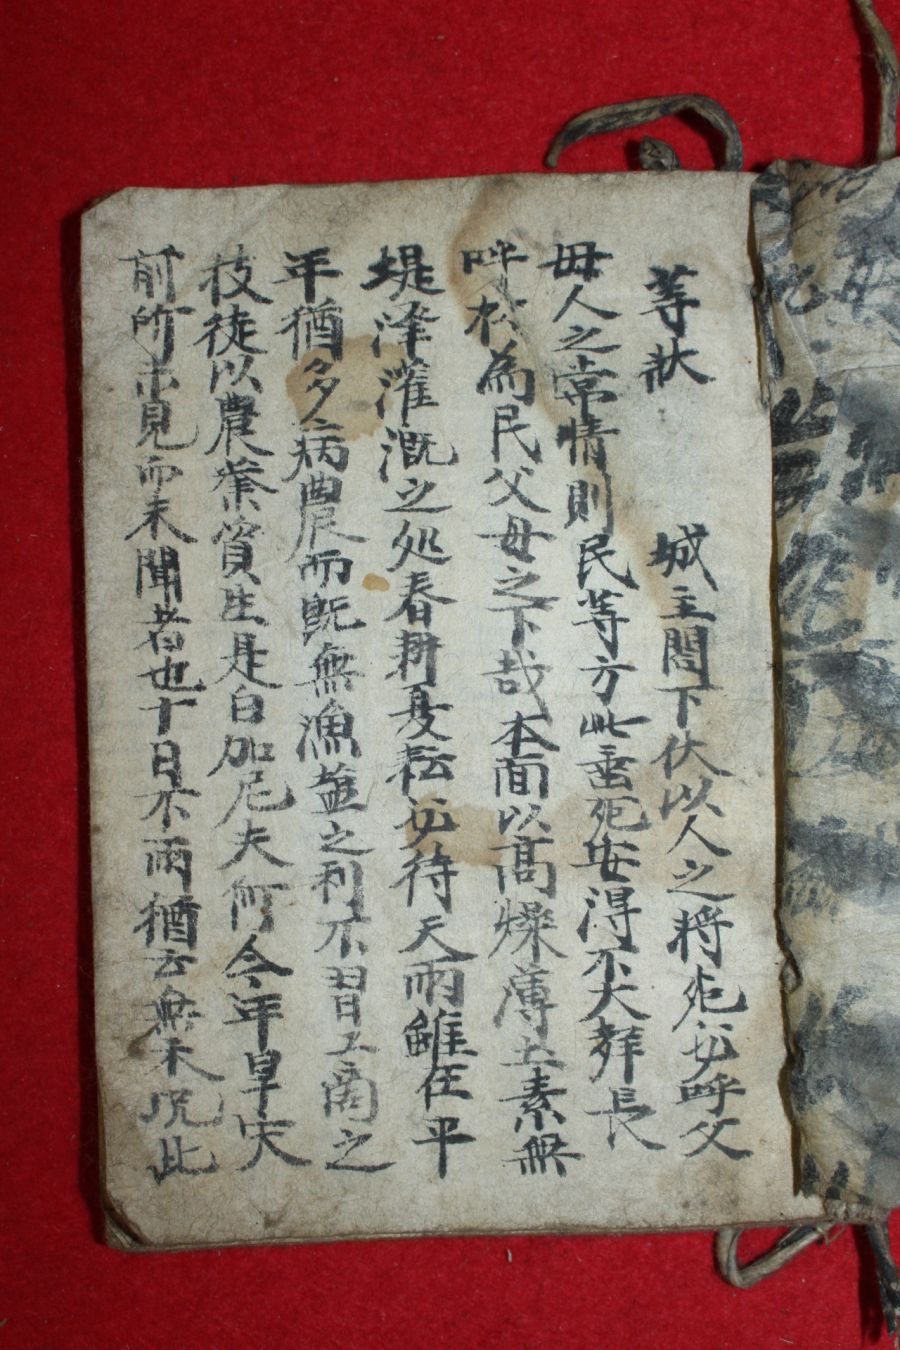 等狀 城主閤下伏以人之將死必呼父
母人之常情則民等方此垂死安得不大聲長
呼於為民父母之下哉本面以髙燥薄土素無
堤澤灌溉之処春耕夏耘必待天雨雖在平
年猶多病農而旣無漁塩之利不習工商之
技徒以農業資生是白加尼夫何今年旱灾
前所未見而未聞者也十日不雨猶云無禾况此